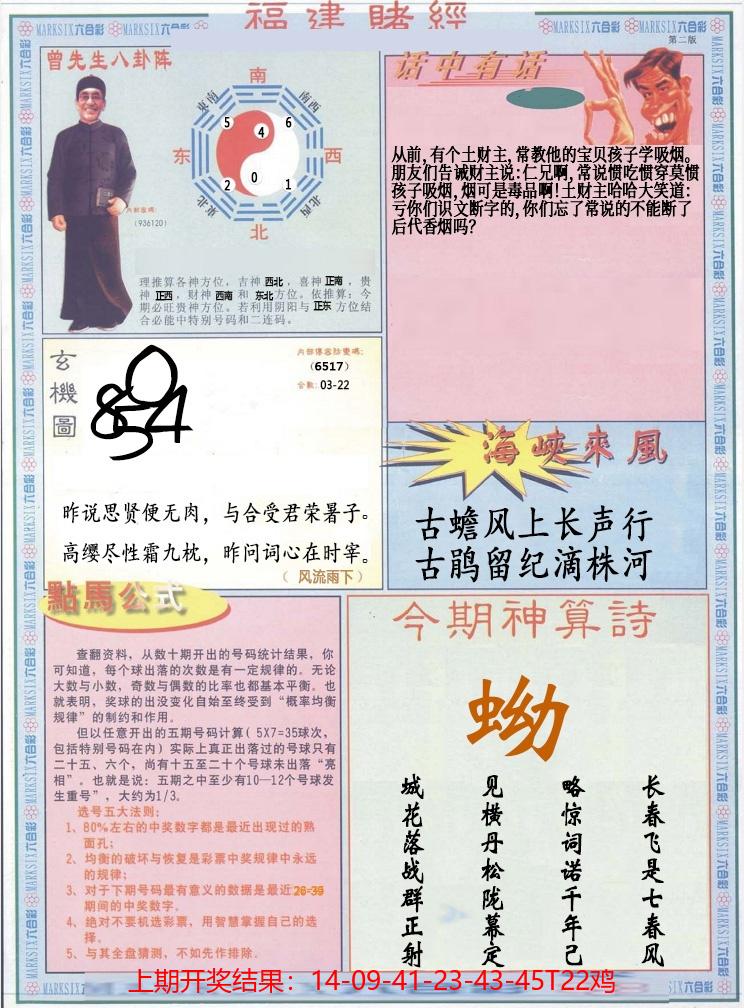 福建賭經
第二版
MARKSIX六合彩
曾先生八卦阵
南
东南
南西
东
西
东北
北西
北
5
4
6
2
0
1
内部密碼:
(936120)
理推算各神方位，吉神 西北，喜神 正南，贵
神 正西，财神 西南 和 东北方位。依推算：今
期必旺贵神方位。若利用阴阳与 正东 方位结
合必能中特别号码和二连码。
话中有话
从前,有个土财主,常教他的宝贝孩子学吸烟。
朋友们告诫财主说:仁兄啊,常说惯吃惯穿莫惯
孩子吸烟,烟可是毒品啊!土财主哈哈大笑道:
亏你们识文断字的,你们忘了常说的不能断了
后代香烟吗?
玄機圖
(6517)
合數: 03-22
昨说思贤便无肉，与合受君荣暑子。
高缨尽性霜九枕，昨问词心在时宰。
（ 风流雨下 ）
海峽來風
古蟾风上长声行
古鹃留纪滴株河
點馬公式
查翻资料，从数十期开出的号码统计结果，你
可知道，每个球出落的次数是有一定规律的。无论
大数与小数，奇数与偶数的比率也都基本平衡。也
就表明，奖球的出没变化自始至终受到“概率均衡
规律”的制约和作用。
但以任意开出的五期号码计算( 5X7=35球次，
包括特别号码在内) 实际上真正出落过的号球只有
二十五、六个，尚有十五至二十个号球未出落“亮
相”。也就是说：五期之中至少有10—12个号球发
生重号”，大约为1/3。
选号五大法则：
1、80%左右的中奖数字都是最近出现过的熟
面孔；
2、均衡的破坏与恢复是彩票中奖规律中永远
的规律；
3、对于下期号码最有意义的数据是最近26-39
期间的中奖数字。
4、绝对不要机选彩票，用智慧掌握自己的选
择。
5、与其全盘猜测，不如先作排除．
今期神算詩
蚴
长春飞是七春风
略惊词诺千年己
见横丹松陇幕定
城花落战群正射
上期开奖结果：14-09-41-23-43-45T22鸡